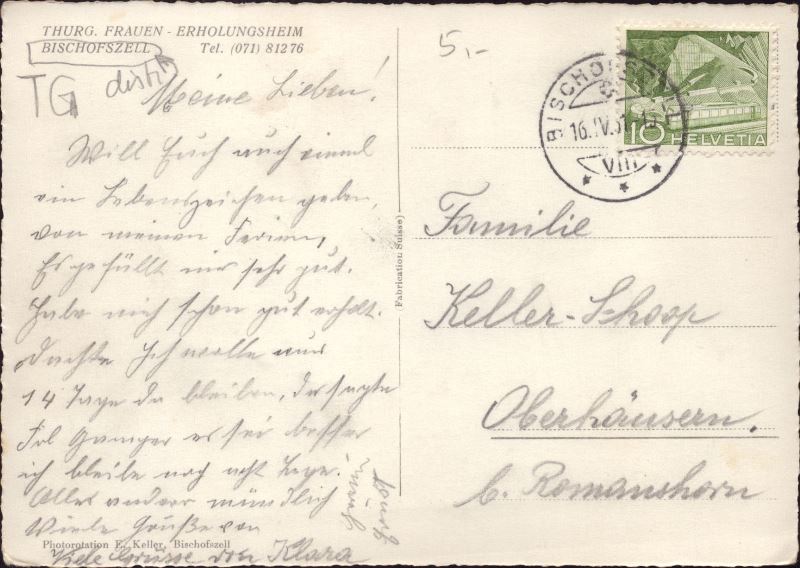 THURG. FRAUEN - ERHOLUNGSHEIM
BISCHOFSZELL Tel. (071) 81276
TG
5.-
Meine Lieben!
Will Euch auch einml
ein Lebenszeichen geben,
von meinen Ferien,
Es gefällt mir sehr gut.
Habe mich schon gut erholt.
Dachte Ich wolle nur
14 Tage da bleiben, da sagte
Frl Gamper es sei besser
ich bleibe noch acht Tage.
Alles andere mündlich
Viele Grüße von
Viele Grüsse von Klara
Photorotation E. Keller, Bischofszell
Fabrication Suisse)
BISCHOFSZELL
16.IV.51
VIII
10 HELVETIA
Familie
Keller-Schoop
Oberhäusern.
b. Romanshorn